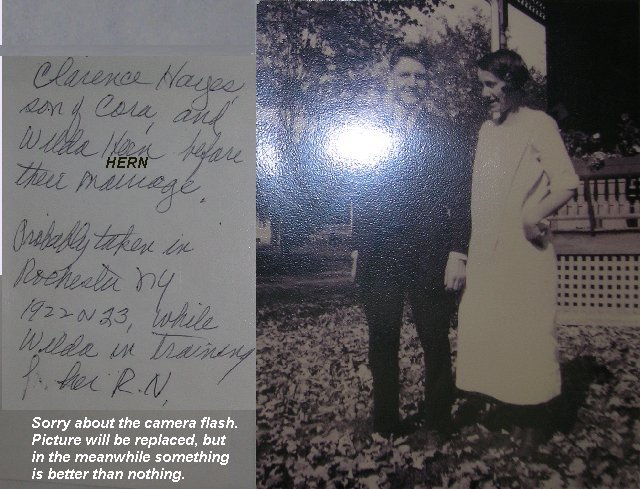 Clarence Hayes
son of Cora, and
Wilda Hern before
HERN
their marriage.
Probably taken in
Rochester NY
1922 or 23, while
Wilda in training
for her R.N.
Sorry about the camera flash.
Picture will be replaced, but
in the meanwhile something
is better than nothing.